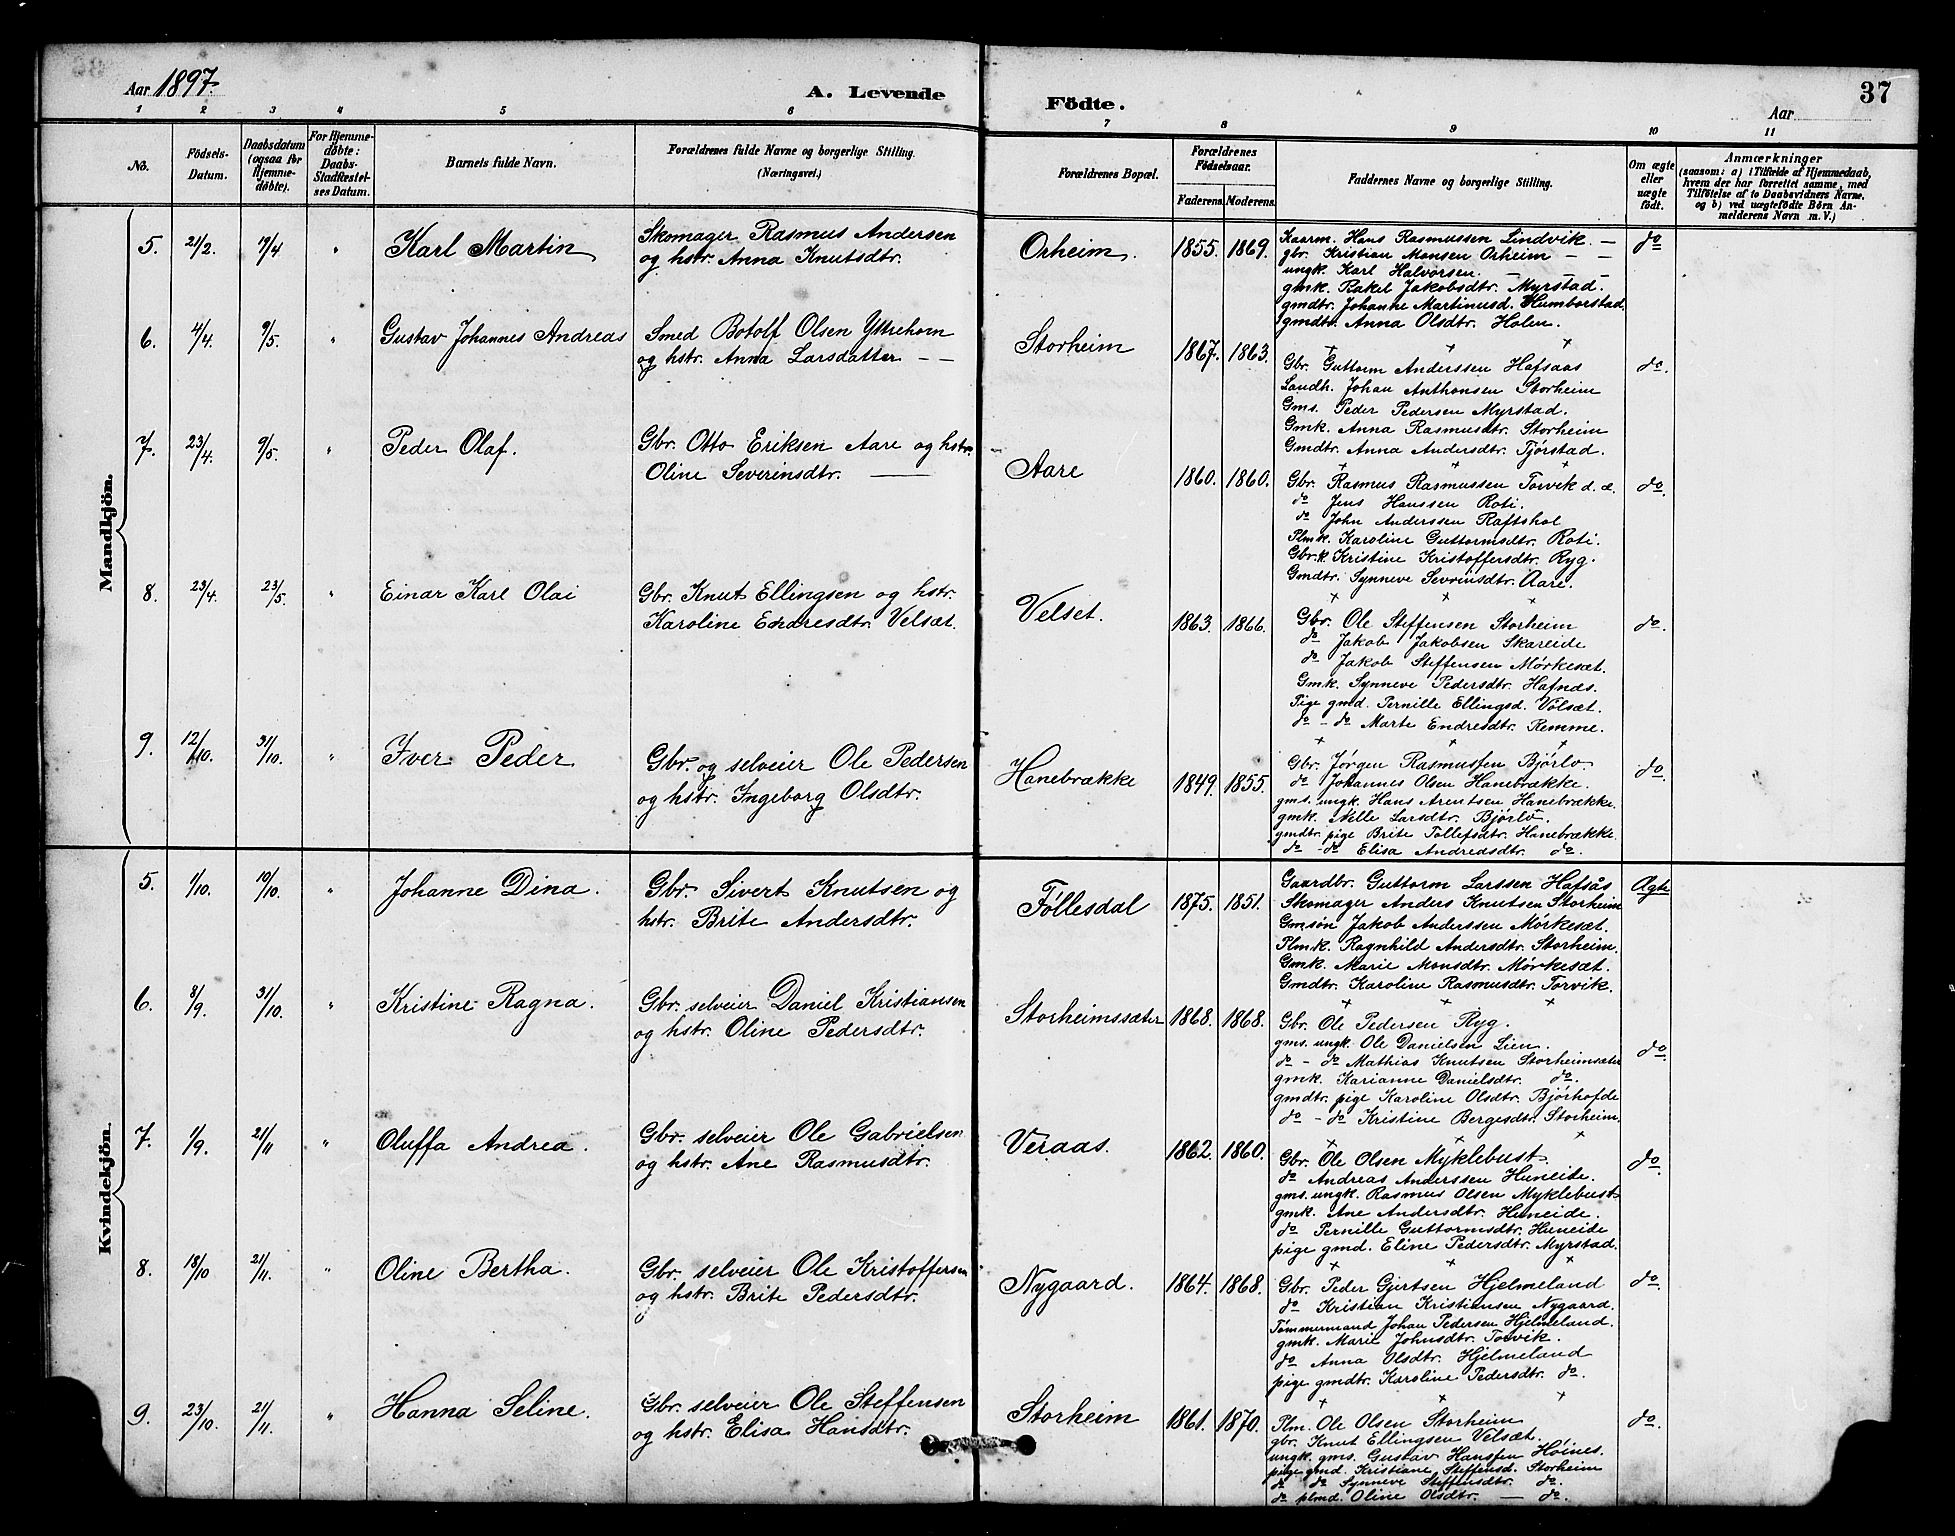 Aar 1897.
A. Levende
Födte.
Aar
37
1 2 3 4 5 6 7 8 9 10 11
No.
Födsels-
Datum.
Daabsdatum
(ogsaa for
Hjemme-
døbte).
For Hjemme-
døbte:
Daabs-
Stadfæstel-
ses Datum.
Barnets fulde Navn.
Forældrenes fulde Navne og borgerlige Stilling.
(Næringsvei.)
Forældrenes Bopæl.
Forældrenes
Födselsaar.
Faderens. Moderens.
Faddernes Navne og borgerlige Stilling.
Om ægte
eller
uægte
født.
Anmærkninger
(saasom: a) i Tilfælde af Hjemmedaab,
hvem der har forrettet samme, med
Tilføielse af to Daabsvidners Navne,
og b) ved uægtefødte Börn An-
melderens Navn m. V.)
Mandkjön.
5. 21/2. 19/4 " Karl Martin
Skomager Rasmus Andersen
og hstr. Anna Knutsdtr.
Orheim. 1855. 1869.
Kaarm. Hans Rasmussen Lindvik. —
gbr. Kristian Monsen Orheim — —
ungk. Karl Halvorsen. — — —
gmk. Rakel Jakobsdtr. Myrstad.
gmdtr. Johanne Martinusd. Humborstad
gmdtr. Anna Olsdtr. Holen.
do
6. 4/4. 9/5. " Gustav Johannes Andreas
Smed Botolf Olsen Yttrehorn
og hstr. Anna Larsdatter — —
Storheim 1867. 1863.
Gbr. Guttorm Anderssen Hafsaas
Landh. Johan Anthonsen Storheim
Gms. Peder Pedersen Myrstad.
Gmk. Anna Rasmusdtr. Storheim
Gmdtr. Anna Andersdtr. Tjørstad.
do.
7. 23/4. 9/5. " Peder Olaf.
Gbr. Otto Eriksen Aare og hstr.
Oline Severinsdtr. —
Aare 1860. 1860.
Gbr. Rasmus Rasmussen Torvik d. æ.
do Jens Hanssen Roti.
do John Anderssen Raftshol
Plmk. Karoline Guttormsdtr. Roti.
Gbr.k. Kristine Kristoffersdtr. Ryg.
Gmdtr. Synneve Sevrinsdtr. Aare.
do.
8. 23/4. 23/5. " Einar Karl Olai
Gbr. Knut Ellingsen og hstr.
Karoline Endresdtr. Velsæt.
Velset. 1863. 1866.
Gbr. Ole Steffensen Storheim
do Jakob Jakobsen Skareide
do Jakob Steffensen Mørkesæt.
Gmk. Synneve Pedersdtr. Hafnæs.
Pige gmd. Pernille Ellingsd. Velsæt.
do - do Marte Endresdtr. Remme.
do.
9. 12/10. 31/10. " Iver Peder
Gbr. og selveier Ole Pedersen
og hstr. Ingeborg Olsdtr.
Hanebrække 1849. 1855.
Gbr. Jørgen Rasmussen Bjørlo
do Johannes Olsen Hanebrække.
gms. ungk. Hans Arentsen Hanebrække.
gmk. Nille Larsdtr. Bjørlo.
gmdtr. pige Brite Tollefsdtr. Hanebrække
do - do Elisa Andreasdtr. do.
do.
Kvindekjön.
5. 1/10. 10/10. " Johanne Dina.
Gbr. Sivert Knutsen og
hstr. Brite Andersdtr.
Föllesdal 1875. 1851.
Gaardbr. Guttorm Larssen Hafsås
Skomager Anders Knutsen Storheim
Gmsøn Jakob Anderssen Mørkesæt.
Plmk. Ragnhild Andersdtr. Storheim.
Gmk. Marie Monsdtr. Mørkesæt.
Gmdtr. Karoline Rasmusdtr. Torvik.
Ægte
6. 8/9. 31/10. " Kristine Ragna.
Gbr. selveier Daniel Kristiansen
og hstr. Oline Pedersdtr.
Storheimssæter 1868. 1868.
Gbr. Ole Pedersen Ryg.
gms. ungk. Ole Danielsen Lien.
do - do Mathias Knutsen Storheimsæter
gmk. Karianne Danielsdtr. do.
gmdtr. pige Karoline Olsdtr. Bjørhofde
do - do Kristine Bergesdtr. Storheim.
do.
7. 1/9. 21/11 " Oluffa Andrea.
Gbr. selveier Ole Gabrielsen
og hstr. Ane Rasmusdtr.
Veraas. 1862. 1860.
Gbr. Ole Olsen Myklebust.
do Andreas Anderssen Huneide.
gms. ungk. Rasmus Olsen Myklebust
gmk. Ane Andersdtr. Huneide.
do Pernille Guttormsdtr. Huneide
pige gmd. Eline Pedersdtr. Myrstad.
do.
8. 18/10 21/11. " Oline Bertha.
Gbr. selveier Ole Kristoffersen
og hstr. Brite Pedersdtr.
Nygaard. 1864. 1868.
Gbr. Peder Gjertsen Hjelmeland
do Kristian Kristiansen Nygaard.
Tømmermand Johan Pedersen Hjelmeland.
gmk. Marie Johnsdtr. Torvik.
do Anna Olsdtr. Hjelmeland
pige gmdtr. Karoline Pedersdtr. do.
do.
9. 23/10. 21/11. " Hanna Seline.
Gbr. selveier Ole Steffensen
og hstr. Elisa Hansdtr.
Storheim 1861. 1870.
Plm. Ole Olsen Storheim
gbr. Knut Ellingsen Velsæt.
ungk. gms. Gustav Hanssen Höines.
pige gmd. Kristiane Steffensd. Storheim
do do Synneve Steffensdtr. do.
do plmd. Oline Olsdtr. — do.
do.